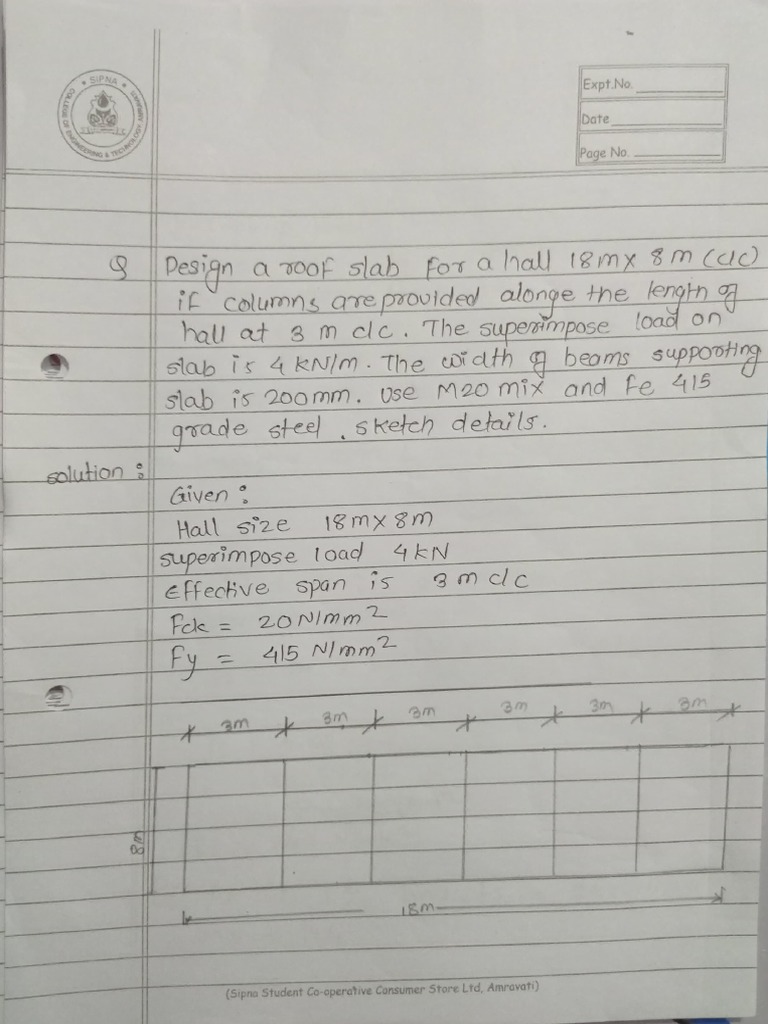 SIPNA
COLLEGE OF ENGINEERING & TECHNOLOGY AMRAVATI
Expt.No.
Date
Page No.
Q Design a roof slab for a hall 18m x 8m (c/c)
if columns are provided alonge the length of
hall at 3 m c/c. The superimpose load on
slab is 4 KN/m. The width of beams supporting
slab is 200mm. Use M20 mix and Fe 415
grade steel. sketch details.
solution :
Given :
Hall size 18m x 8m
superimpose load 4 KN
Effective span is 3 m c/c
Fck = 20 N/mm²
Fy = 415 N/mm²
3m 3m 3m 3m 3m 3m
8m
18m
(Sipna Student Co-operative Consumer Store Ltd, Amravati)